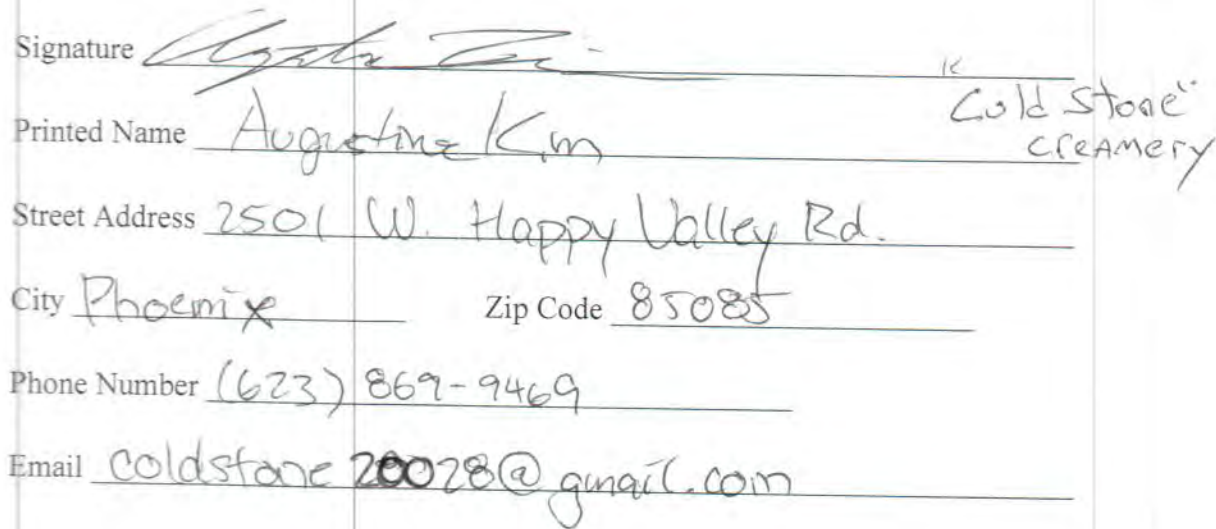 Signature
"Cold Stone"
Creamery
Printed Name Augustine Kim
Street Address 2501 W. Happy Valley Rd.
City Phoenix Zip Code 85085
Phone Number (623) 869-9469
Email coldstone20028@gmail.com